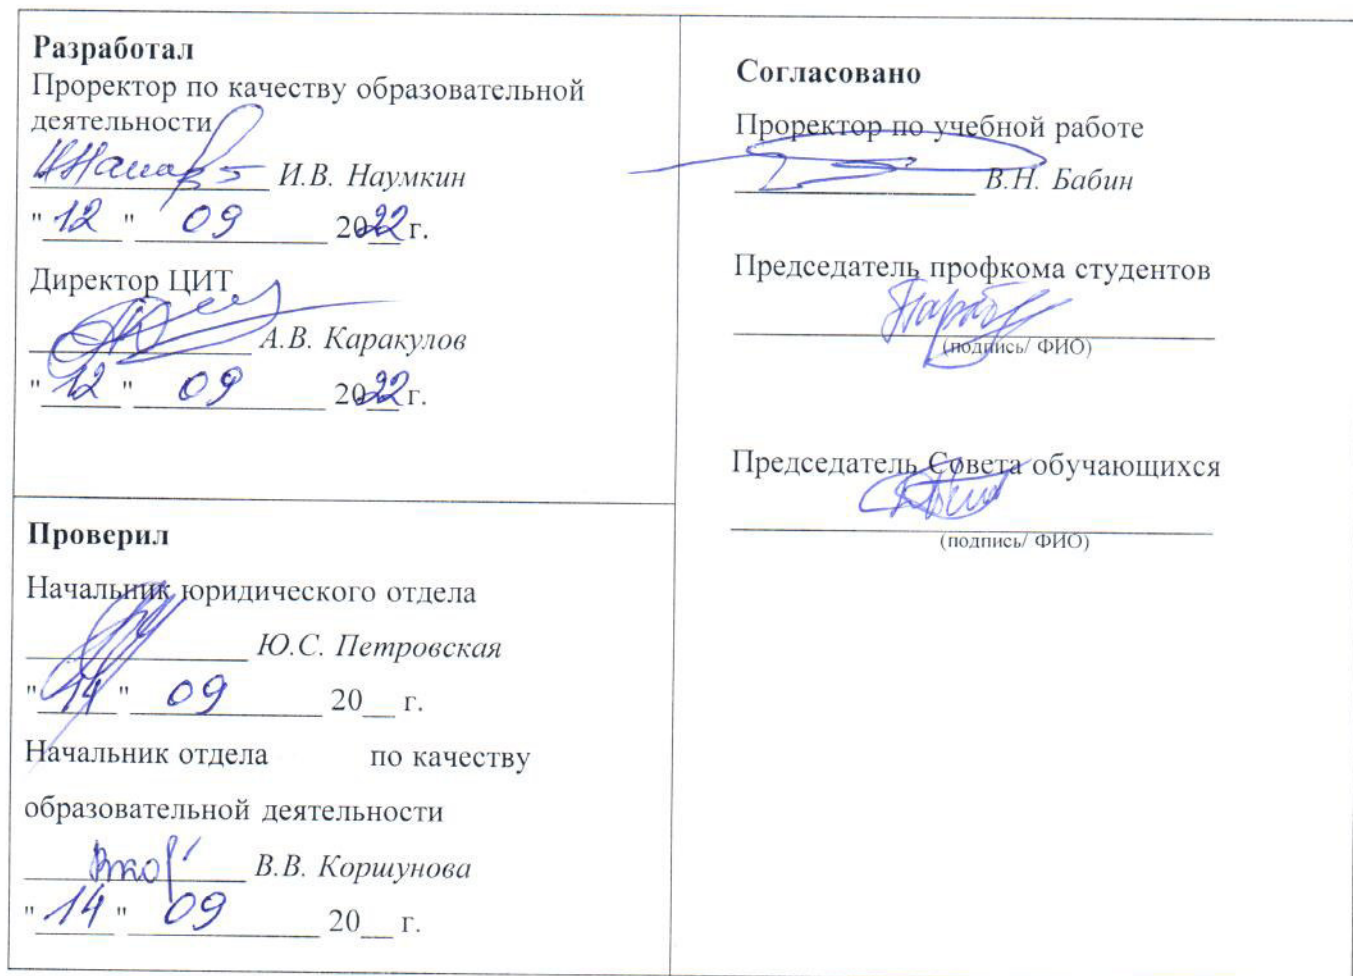 Разработал
Проректор по качеству образовательной
деятельности
И.В. Наумкин
"12" 09 2022 г.
Директор ЦИТ
А.В. Каракулов
"12" 09 2022 г.
Проверил
Начальник юридического отдела
Ю.С. Петровская
"14" 09 20__ г.
Начальник отдела по качеству
образовательной деятельности
В.В. Коршунова
"14" 09 20__ г.
Согласовано
Проректор по учебной работе
В.Н. Бабин
Председатель профкома студентов
(подпись/ ФИО)
Председатель Совета обучающихся
(подпись/ ФИО)